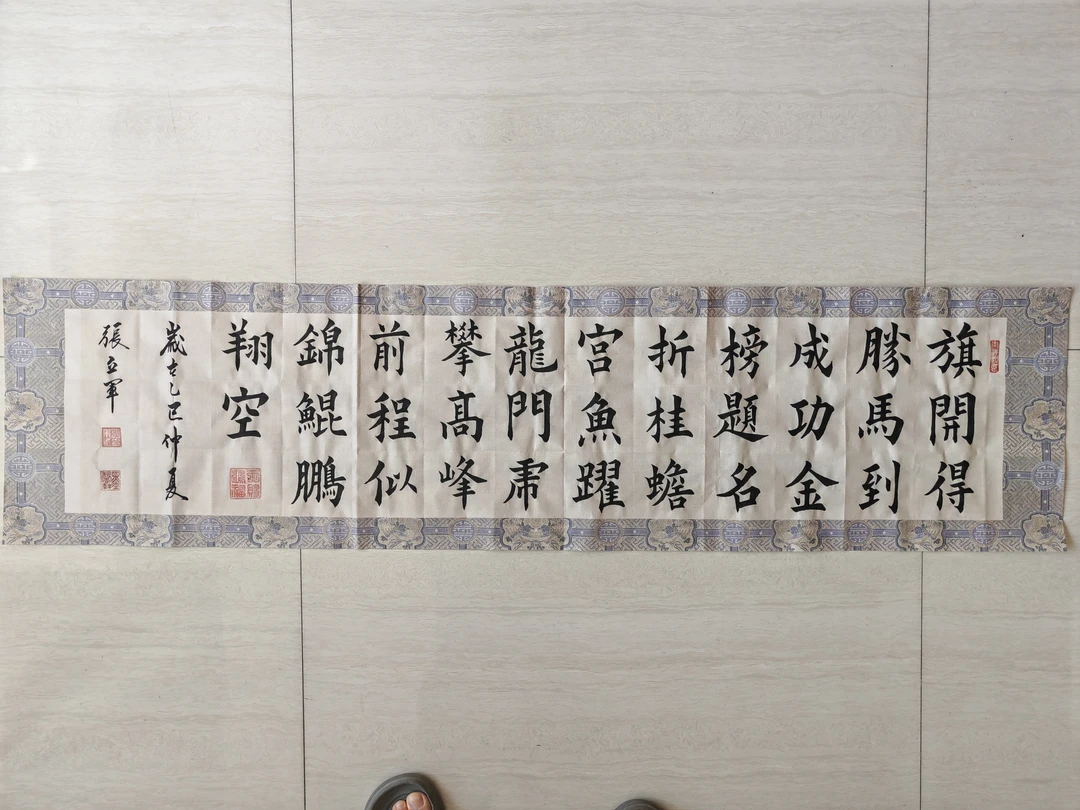 旗開得
勝馬到
成功金
榜題名
折桂蟾
宫魚躍
龍門虎
攀高峰
前程似
錦鯤鵬
翔空
嵗在乙巳仲夏
張立軍